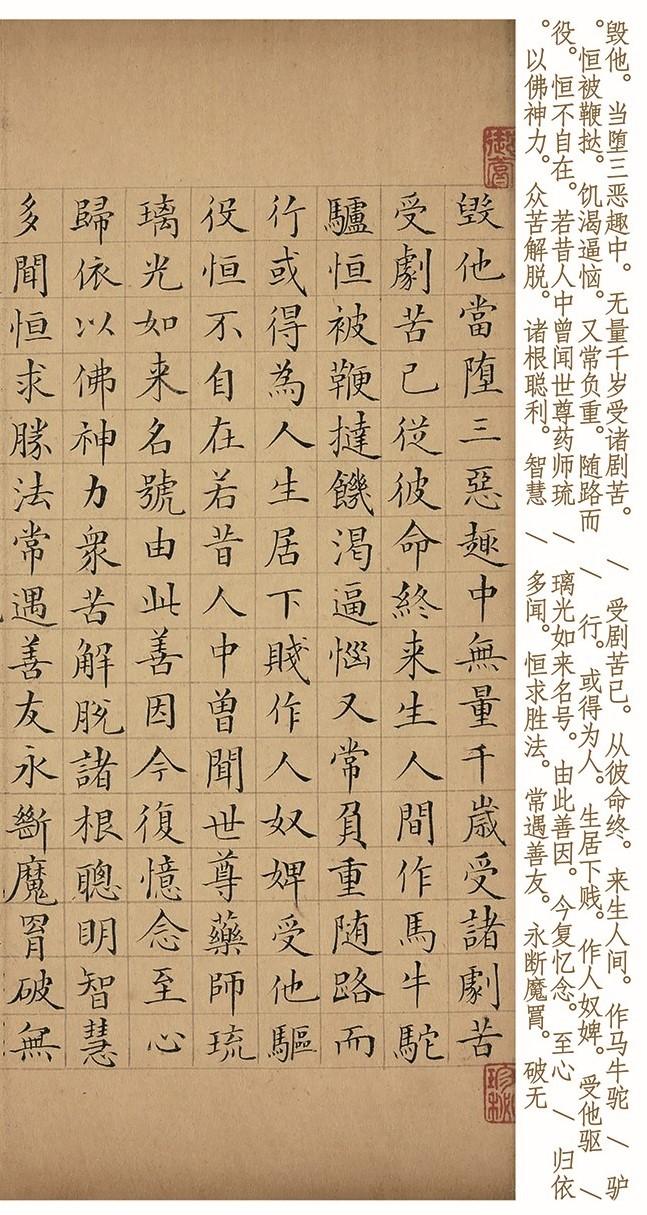 毁他。当堕三恶趣中。无量千岁受诸剧苦。 \ 受剧苦已。从彼命终。来生人间。作马牛驼 \ 驴
。恒被鞭挞。饥渴逼恼。又常负重。随路而 \ 行。或得为人。生居下贱。作人奴婢。受他驱 \
役。恒不自在。若昔人中曾闻世尊药师琉 \ 璃光如来名号。由此善因。今复忆念。至心 \ 归依
。以佛神力。众苦解脱。诸根聪利。智慧 \ 多闻。恒求胜法。常遇善友。永断魔罥。破无
毀他當堕三惡趣中無量千歳受諸劇苦
受劇苦已從彼命終来生人間作馬牛駝
驢恒被鞭撻饑渴逼惱又常負重随路而
行或得為人生居下賤作人奴婢受他驅
役恒不自在若昔人中曾聞世尊藥師琉
璃光如来名號由此善因今復憶念至心
歸依以佛神力衆苦解脫諸根聰明智慧
多聞恒求勝法常遇善友永斷魔罥破無
珍秘